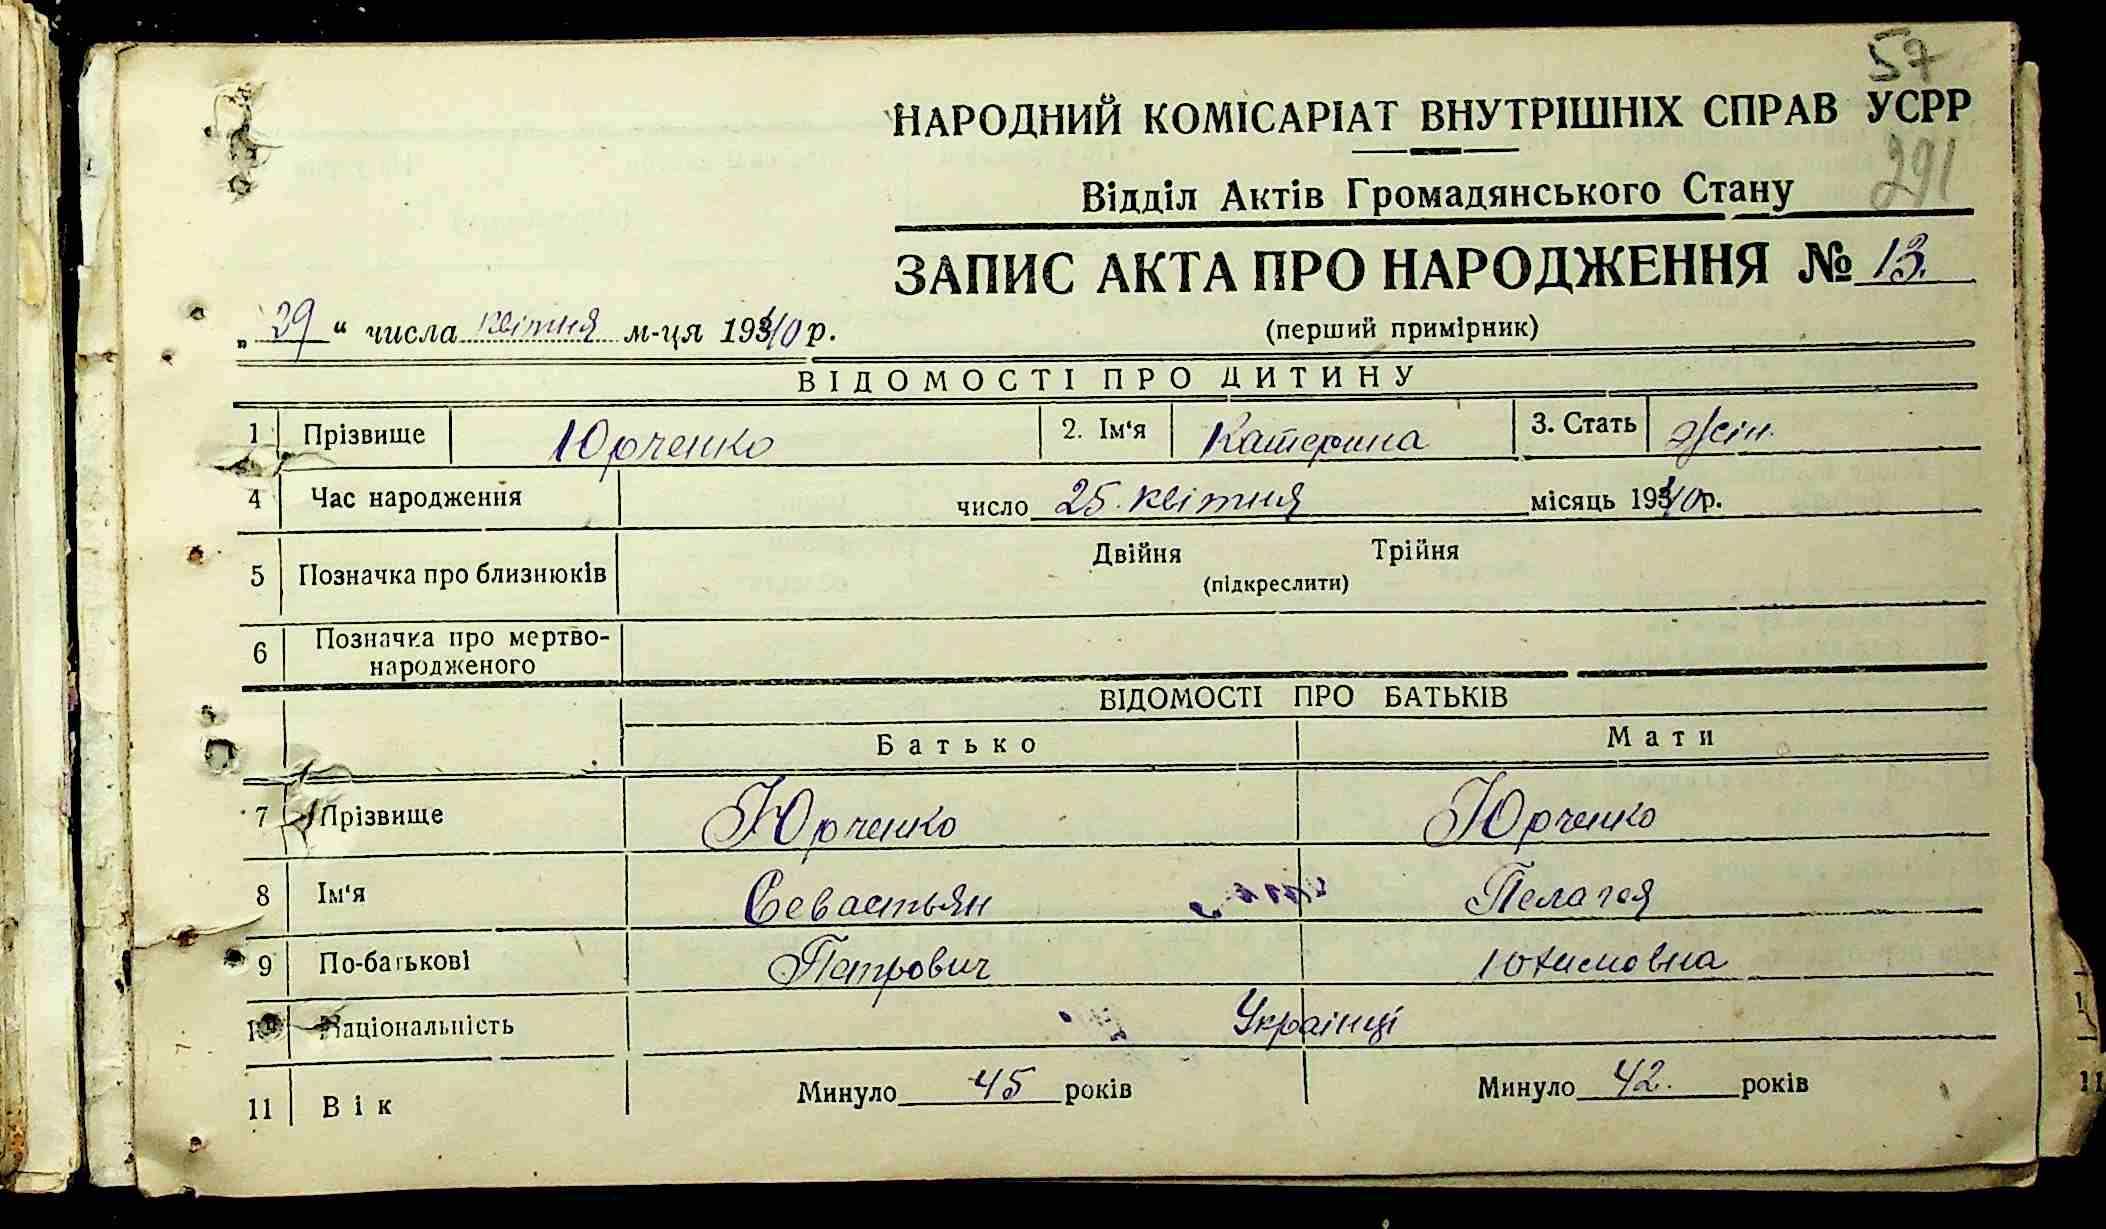 57
НАРОДНИЙ КОМІСАРІАТ ВНУТРІШНІХ СПРАВ УСРР
291
Відділ Актів Громадянського Стану
ЗАПИС АКТА ПРО НАРОДЖЕННЯ № 13.
„ 29 “ числа квітня м-ця 1940 р.
(перший примірник)
ВІДОМОСТІ ПРО ДИТИНУ
1 Прізвище Юрченко 2. Ім‘я Катерина 3. Стать жін.
4 Час народження число 25 квітня місяць 1940 р.
5 Позначка про близнюків Двійня Трійня
(підкреслити)
6 Позначка про мертво-
народженого
ВІДОМОСТІ ПРО БАТЬКІВ
Батько Мати
7 Прізвище Юрченко Юрченко
8 Ім‘я Севастьян Пелагея
9 По-батькові Петрович
10 Національність Українці
11 Вік Минуло 45 років Минуло 42. років
11